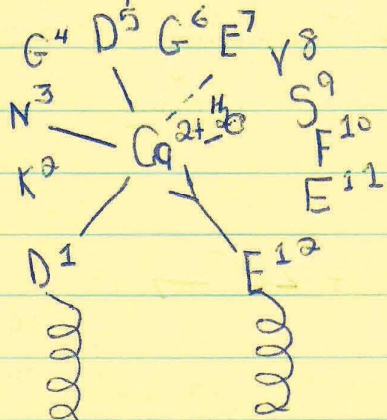 G⁴ D⁵ G⁶ E⁷ V⁸
N³ S⁹
Ca²⁺ H₂O F¹⁰
K² E¹¹
D¹ E¹²